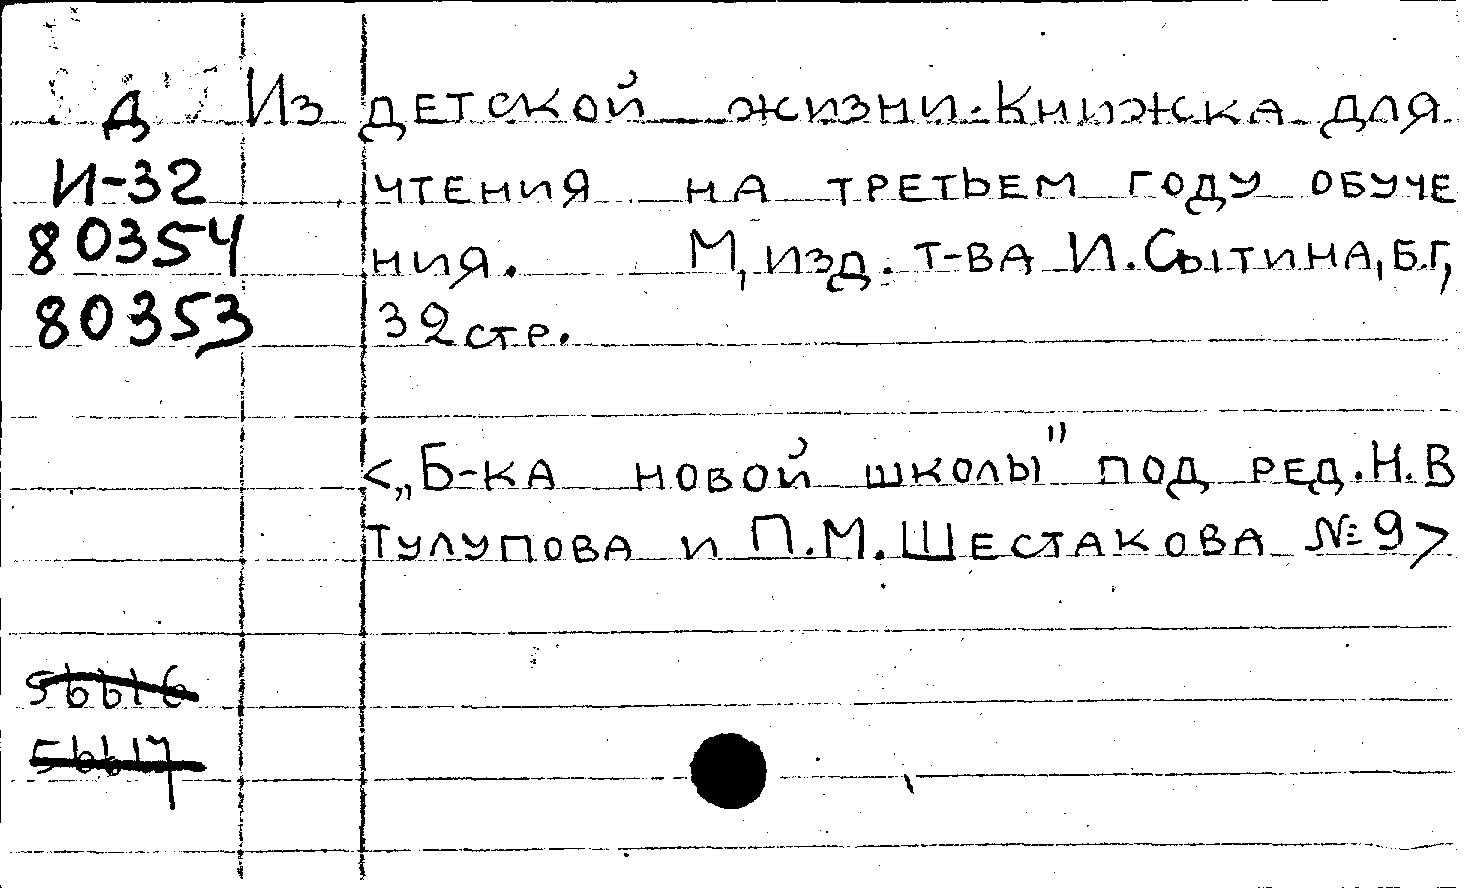 Д Из детской жизни. Книжка для
И-32 чтения на третьем году обуче
80354 ния. М, изд. т-ва И. Сытина, Б.Г,
80353 32 стр.
<„Б-ка новой школы" под ред. Н. В
Тулупова и П. М. Шестакова №9>
56616
56617